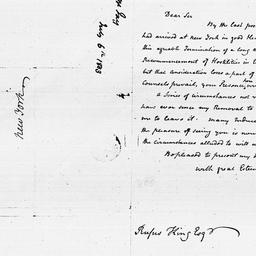 New York
July 6th 1803
Dear Sir
By the last pos
had arrived at New York in good He
this agreable Termination of a long a
Recommencement of Hostilities in
but that consideration loses a part of
Counsels prevail, your Presence
A Series of circumstances not
have ever since my Removal to
me to leave it. Many
the pleasure of seeing you is now
the circumstances alluded to will
Be pleased to present my
with great Estee
Rufus King Esqr